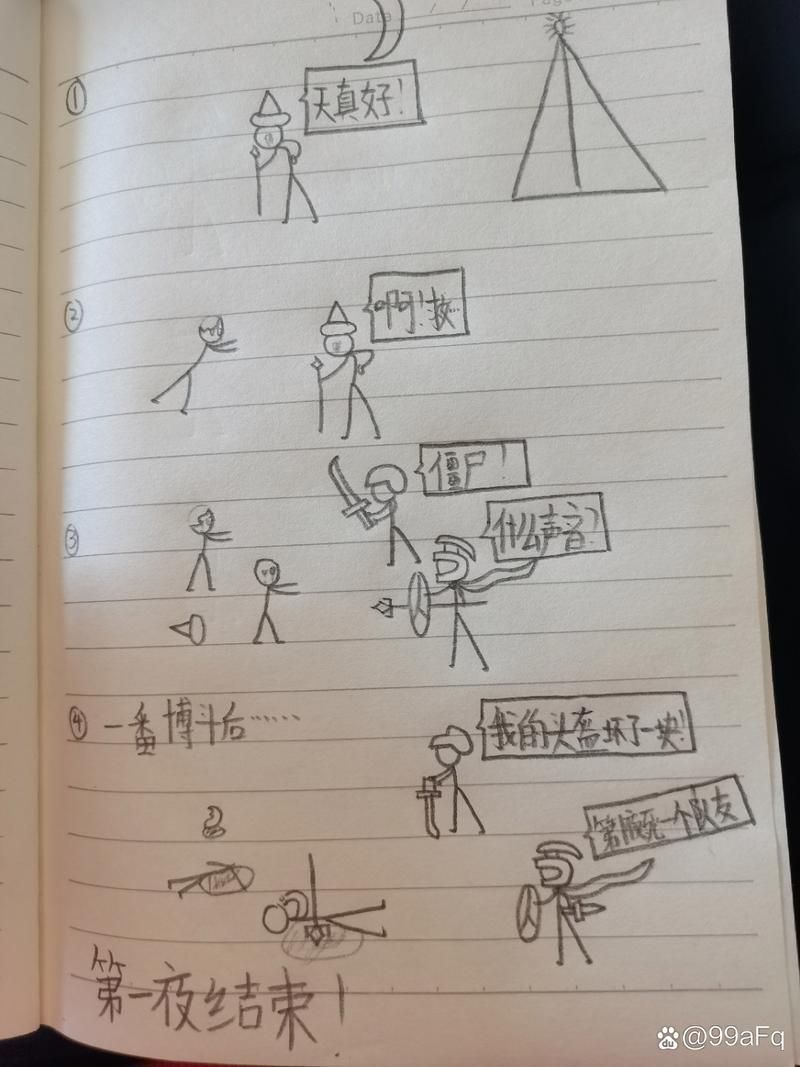 Date
①
天真好！
②
啊！救…
③
僵尸！
什么声音？
④ 一番博斗后……
我的头盔坏了一块！
一个队友
第一夜结束！
du @99aFq